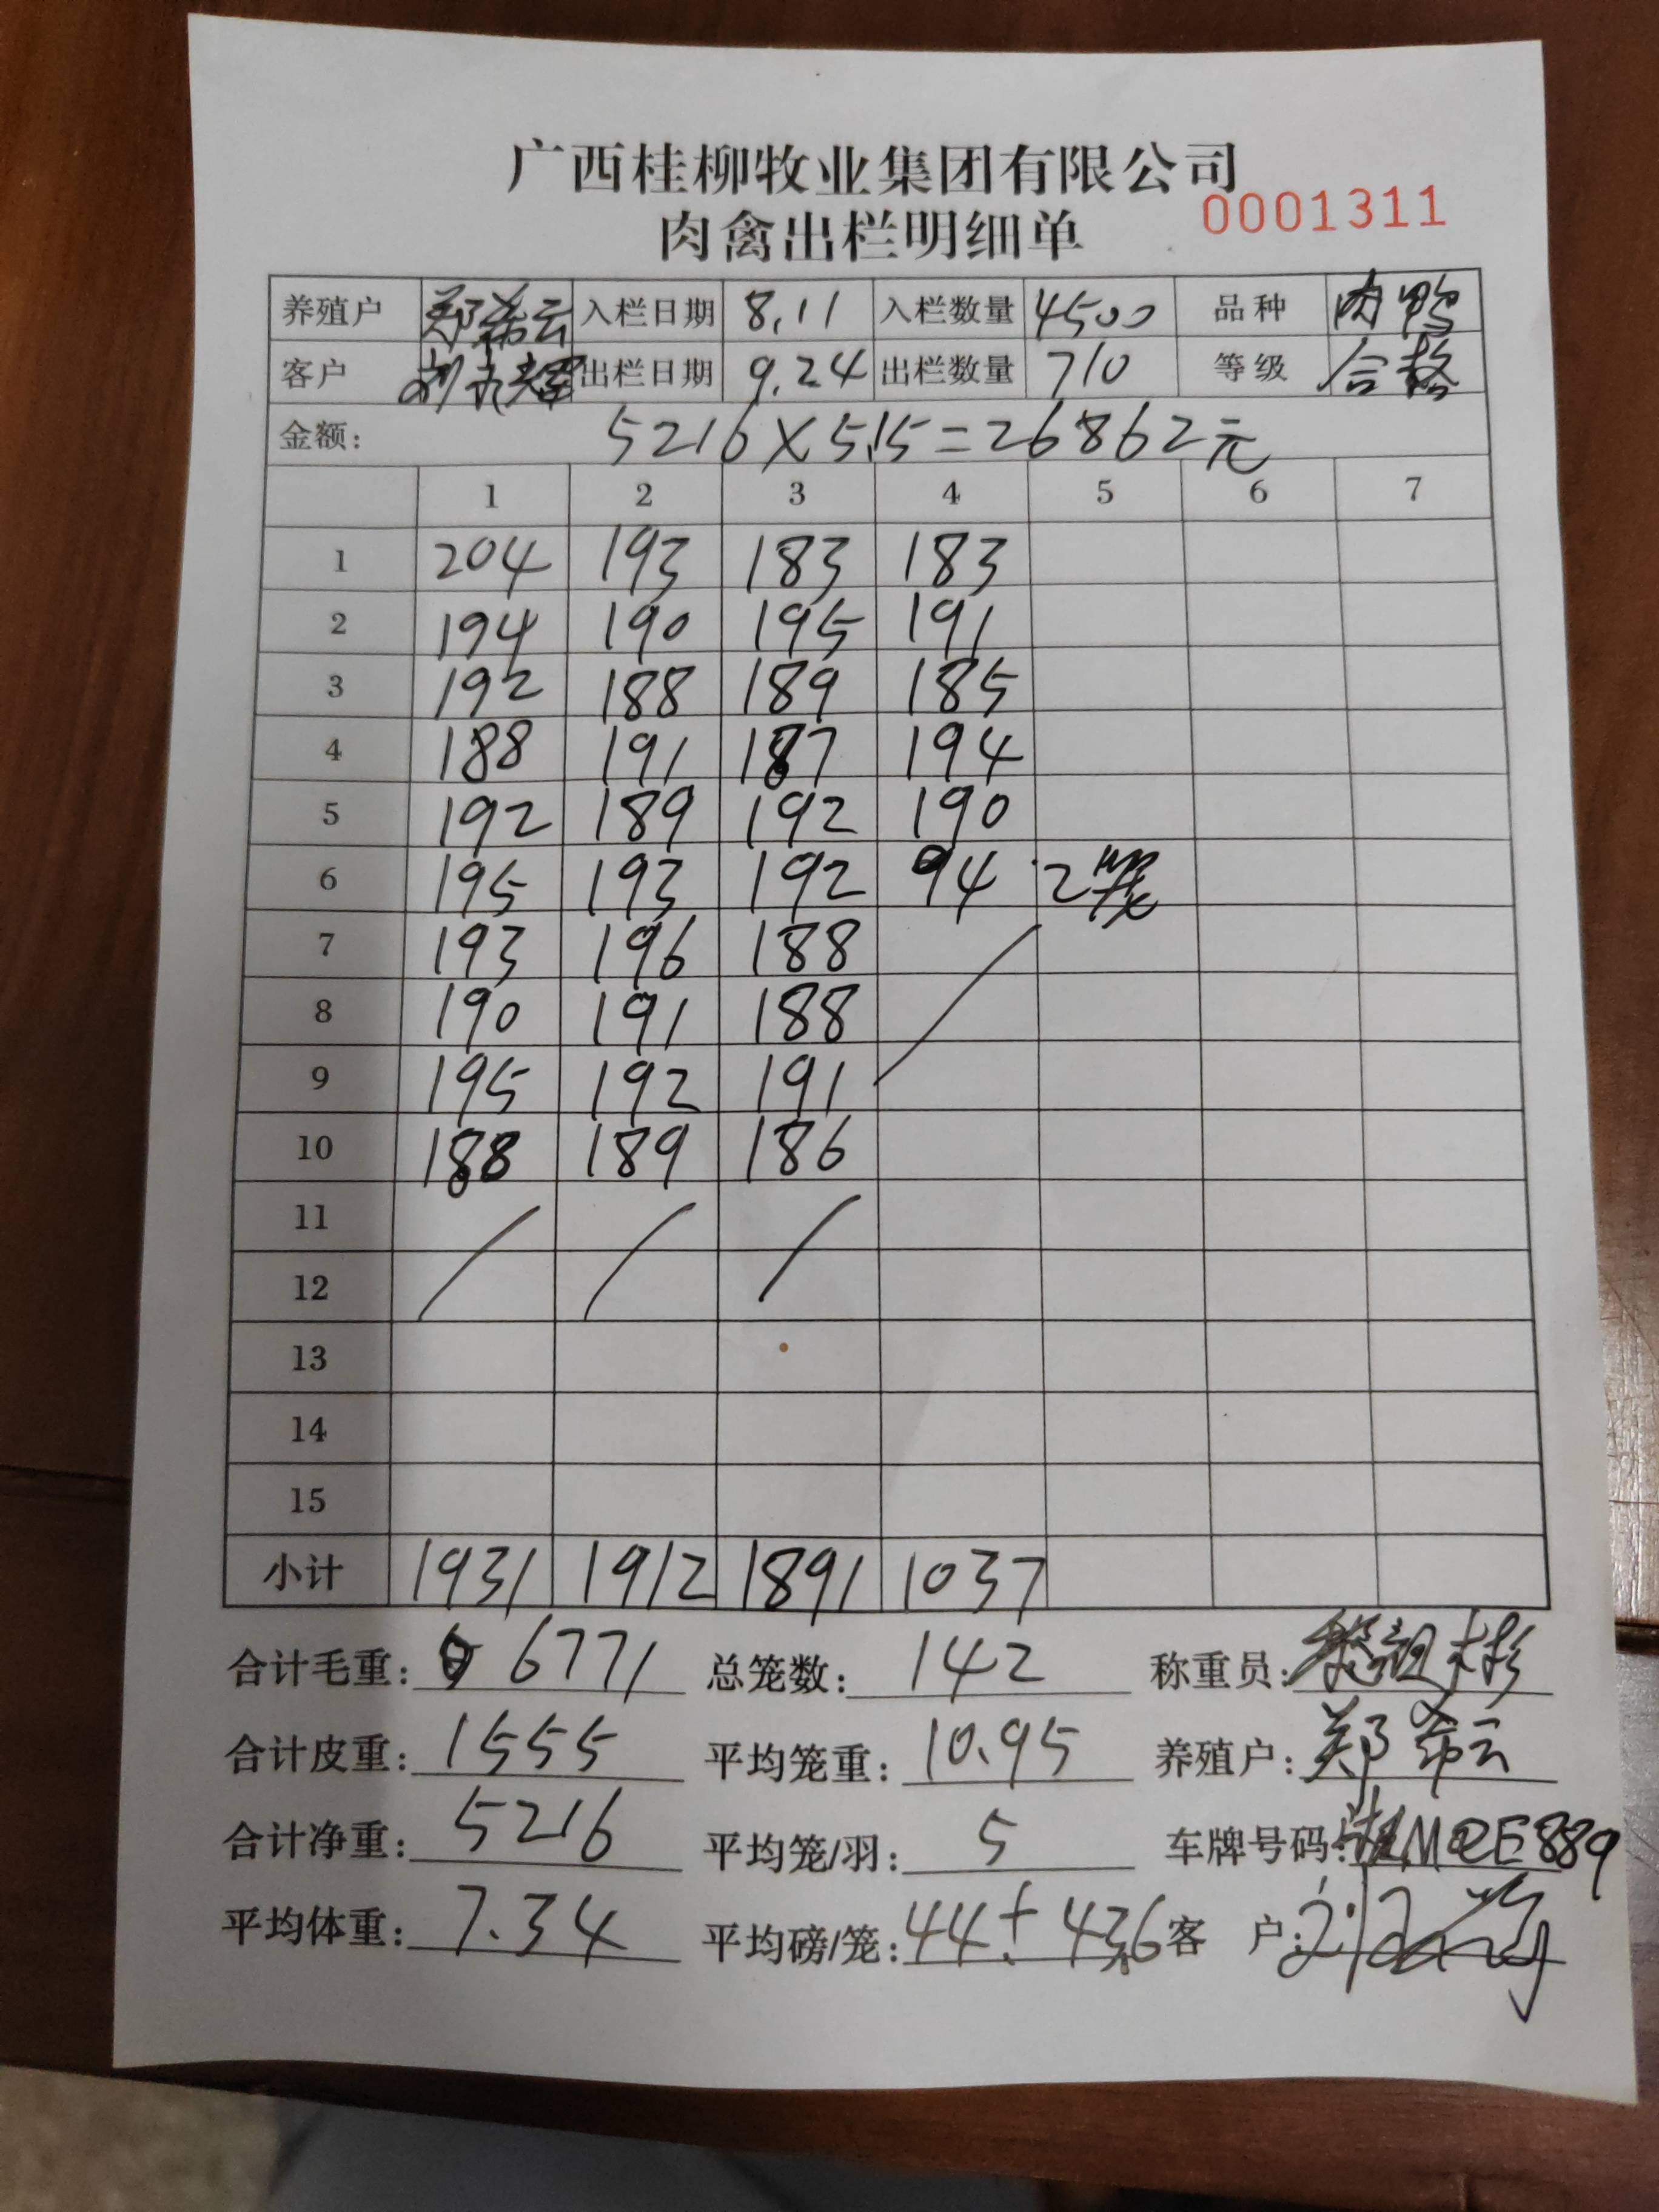 广西桂柳牧业集团有限公司
肉禽出栏明细单 0001311
养殖户 郑希云 入栏日期 8.11 入栏数量 4500 品种 肉鸭
客户 出栏日期 9.24 出栏数量 710 等级 合格
金额: 5216×5.15=26862元
1 2 3 4 5 6 7
1 204 193 183 183
2 194 190 195 191
3 192 188 189 185
4 188 191 187 194
5 192 189 192 190
6 195 193 192 94 2笼
7 193 196 188
8 190 191 188
9 195 192 191
10 188 189 186
11
12
13
14
15
小计 1931 1912 1891 1037
合计毛重: 6771 总笼数: 142 称重员:
合计皮重: 1555 平均笼重: 10.95 养殖户: 郑希云
合计净重: 5216 平均笼/羽: 5 车牌号码:
平均体重: 7.34 平均磅/笼: 44± 43.6 客 户: